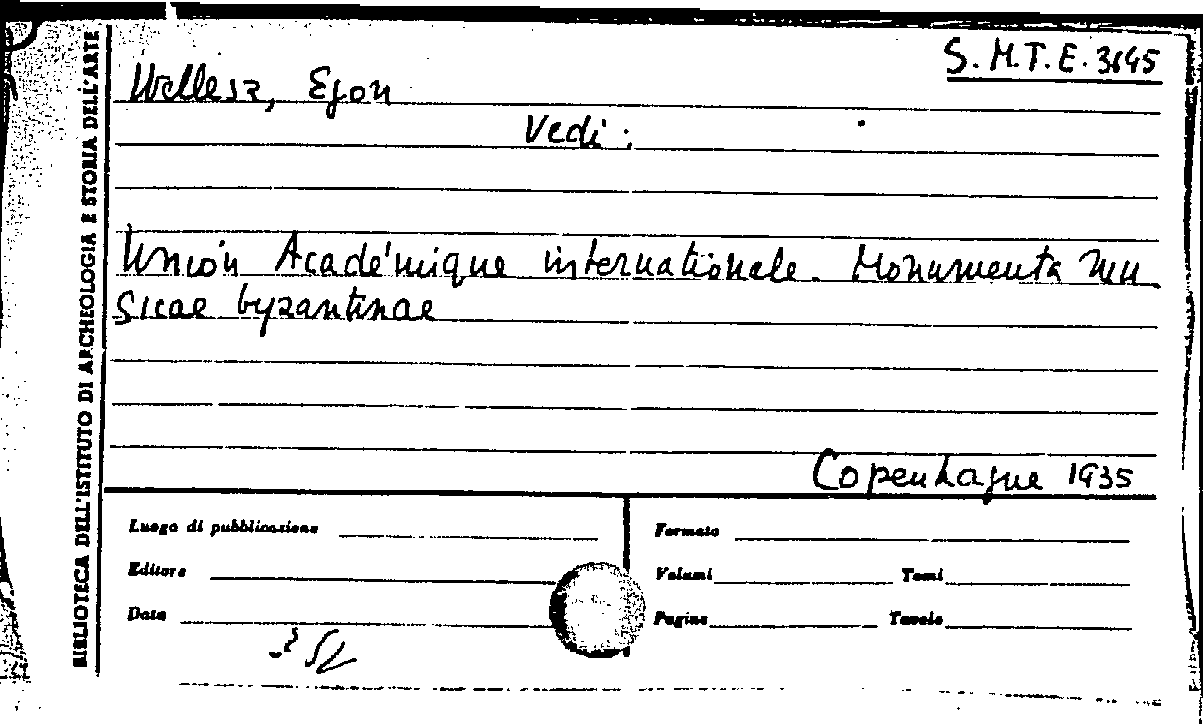 S. M. T. E. 3645
Wellesz, Egon
Vedi :
Union Académique internationale. Monumenta mu
sicae byzantinae
Copenhague 1935
BIBLIOTECA DELL'ISTITUTO DI ARCHEOLOGIA E STORIA DELL'ARTE
Luogo di pubblicazione
Editore
Data
Formato
Volumi Tomi
Pagine Tavole